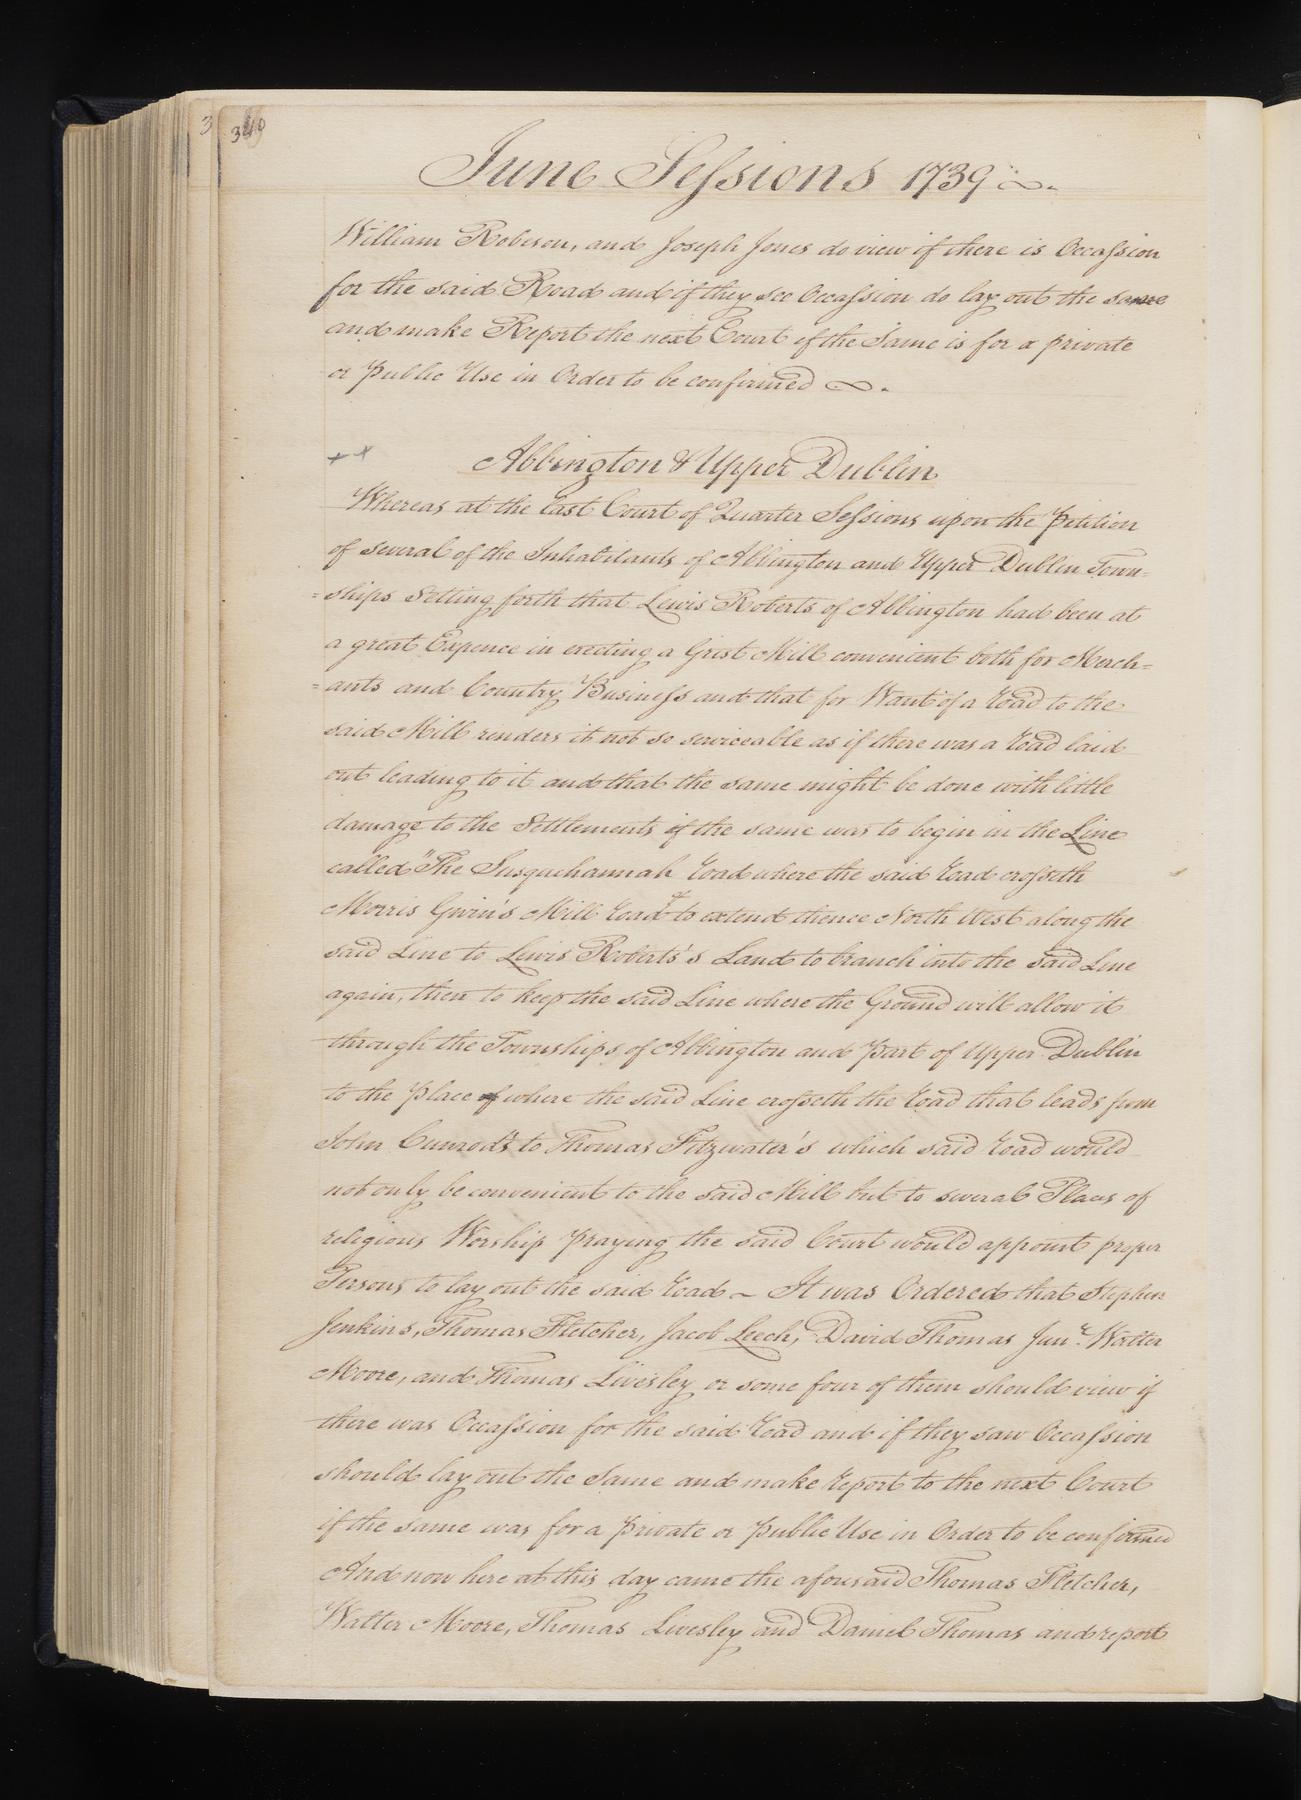 340
June Sessions 1739
William Robeson, and Joseph Jones do view if there is Occassion
for the said Road and if they see Occassion do lay out the same
and make Report the next Court if the Same is for a private
or Public Use in Order to be confirmed
++
Abbington & Upper Dublin
Whereas at the last Court of Quarter Sessions upon the Petition
of several of the Inhabitants of Abbington and Upper Dublin Town=
=ships Setting forth that Lewis Roberts of Abbington had been at
a great Expence in erecting a Grist Mill convenient both for Merch=
=ants and Country Business and that for Want of a Road to the
said Mill renders it not so serviceable as if there was a Road laid
out leading to it and that the same might be done with little
damage to the Settlements if the same was to begin in the Line
called "The Susquehannah Road where the said Road crosseth
Morris Gwin's Mill Road & to extend thence North West along the
said Line to Lewis Roberts's Land to branch into the said Line
again, then to keep the said Line where the Ground will allow it
through the Townships of Abbington and Part of Upper Dublin
to the Place of where the said Line crosseth the Road that leads from
John Cunrod's to Thomas Fitzwater's which said Road would
not only be convenient to the said Mill but to several Places of
religious Worship Praying the said Court would appoint proper
Persons to lay out the said Road ~ It was Ordered that Stephen
Jenkins, Thomas Fletcher, Jacob Leech, David Thomas Junr. Walter
Moore, and Thomas Livesley or some four of them should view if
there was Occassion for the said Road and if they saw Occassion
should lay out the Same and make Report to the next Court
if the same was for a Private or Public Use in Order to be confirmed
And now here at this day came the aforesaid Thomas Fletcher,
Walter Moore, Thomas Livesley and Daniel Thomas and report